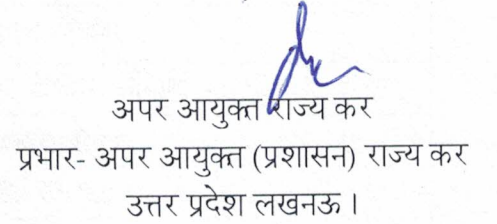 अपर आयुक्त राज्य कर
प्रभार- अपर आयुक्त (प्रशासन) राज्य कर
उत्तर प्रदेश लखनऊ।